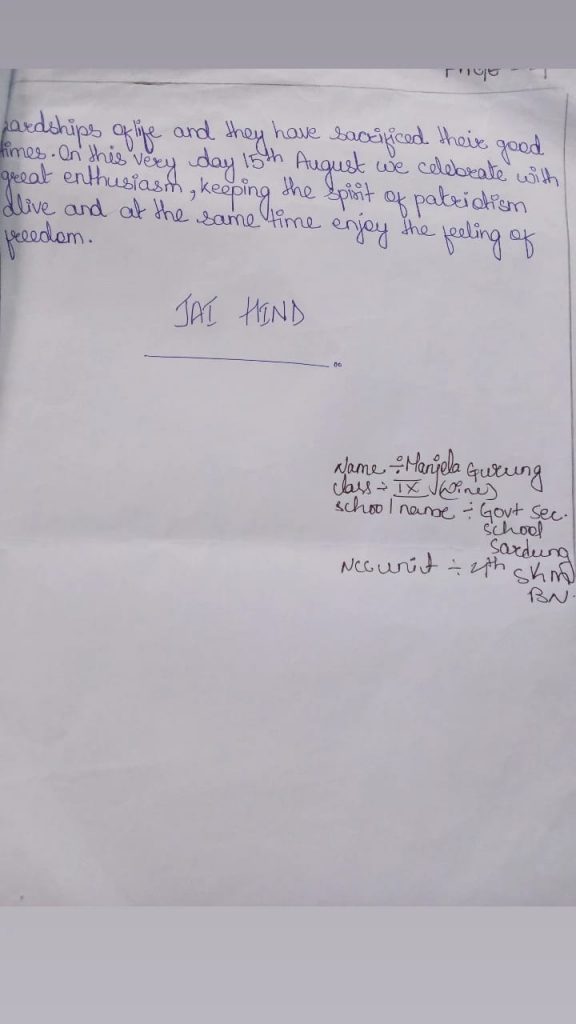 Page - 4
hardships of life and they have sacrificed their good
times. On this very day 15th August we celebrate with
great enthusiasm, keeping the spirit of patriotism
alive and at the same time enjoy the feeling of
freedom.
JAI HIND
Name ÷ Manjela Gurung
class ÷ IX (Nine)
school name ÷ Govt Sec.
school
Sardung
NCC unit ÷ 4th SKM
BN.